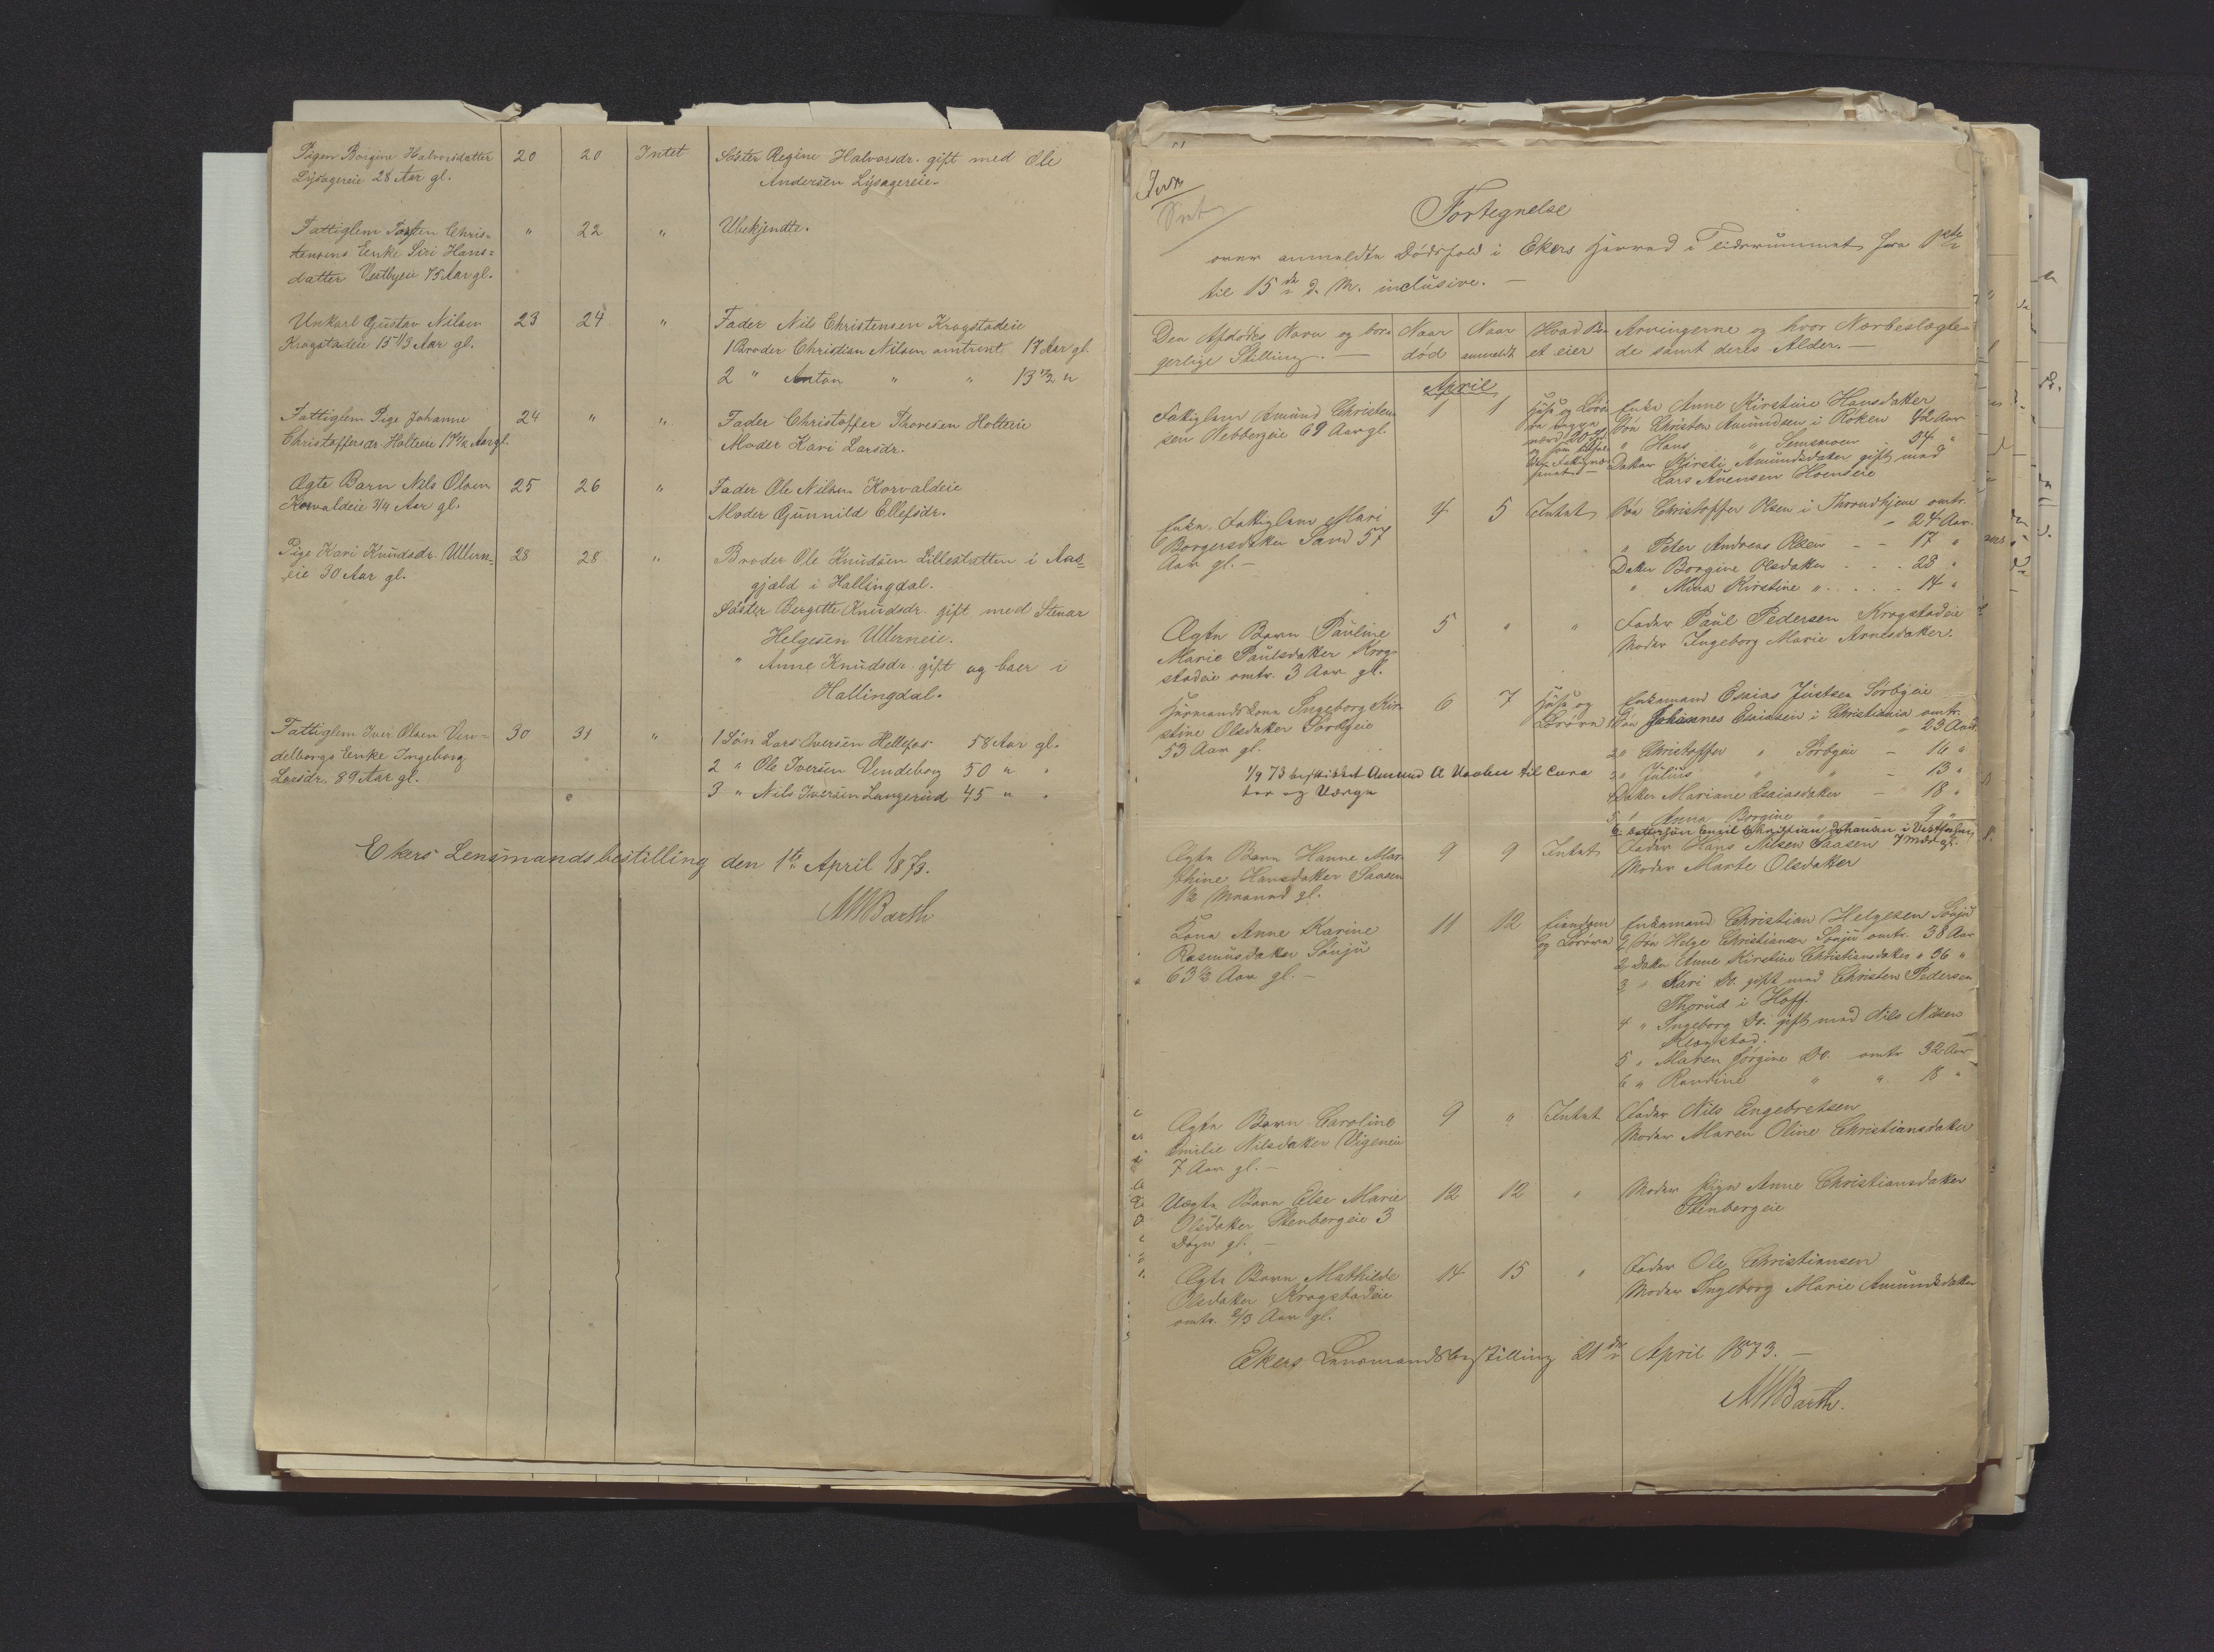 Pigen Borgine Halvorsdatter 20 20 Intet Söster Regine Halvorsdr. gift med Ole
Lysagereie 28 Aar gl. Andersen Lysagereie.
Fattiglem Torsten Chris- " 22 " Ubekjendte.
tensens Enke Siri Hans-
datter Vestbyeie 75 Aar gl.
Unkarl Gustav Nilsen 23 24 " Fader Nils Christensen Krogstadeie
Krogstadeie 15 1/3 Aar gl. 1 Broder Christian Nilsen omtrent 17 Aar gl.
2 " Anton " " 13 1/2 "
Fattiglem Pige Johanne 24 " " Fader Christoffer Thoresen Holteeie
Christoffersdr. Holteeie 17 1/2 Aar gl. Moder Kari Larsdr.
Ægte Barn Nils Olsen 25 26 " Fader Ole Nilsen Korvaldeie
Korvaldeie 3/4 Aar gl. Moder Gunnild Ellefsdr.
Pige Kari Knudsdr. Ullern- 28 28 " Broder Ole Knudsen Lilleslatten i Aas-
eie 30 Aar gl. gjæld i Hallingdal.
Söster Bergitte Knudsdr. gift med Stenar
Helgesen Ullerneie.
" Anne Knudsdr. gift og boer i
Hallingdal.
Fattiglem Iver Olsen Ven- 30 31 " 1 Sön Lars Iversen Hellefos 58 Aar gl.
delborgs Enke Ingeborg 2 " Ole Iversen Vendelborg 50 " "
Larsdr. 89 Aar gl. 3 " Nils Iversen Langerud 45 " "
Ekers Lensmandsbestilling den 1ste April 1873.
MWBarth
Fortegnelse
over anmeldte Dödsfald i Ekers Herred i Tidsrummet fra 1ste
til 15de d. M. inclusive. —
Den Afdödes Navn og bor- Naar Naar Hvad Bo- Arvingerne og hvor Nærbeslægte-
gerlige Stilling. — död anmeldt et eier de samt deres Alder. —
April
Fattiglem Amund Christen- 1 1 Huse og Lösöre Enke Anne Kirstine Hansdatter
sen Nebbergeie 69 Aar gl. Sön Christen Amundsen i Röken 42 Aar
" Hans " Semsmoen 34 "
Datter Kirsti Amundsdatter gift med
Lars Evensen Hoenseie
Enke Fattiglem Mari 4 5 Intet Sön Christoffer Olsen i Throndhjem omtr.
Borgersdatter Sand 57 - 24 Aar.
Aar gl. — " Peter Andreas Olsen - - 17 "
Datter Borgine Olsdatter - - - 23 "
" Mina Kirstine " - - - 14 "
Ægte Barn Pauline 5 " " Fader Paul Pedersen Krogstadeie
Marie Paulsdatter Krog- Moder Ingeborg Marie Arnesdatter.
stadeie omtr. 3 Aar gl.
Husmandskone Ingeborg Kir- 6 7 Huse og Enkemand Esaias Justsen Sörbyeie
stine Olsdatter Sörbyeie Lösöre 1 Sön Johannes Esaiasen i Christiania omtr.
53 Aar gl. " 23 Aar.
2 " Christoffer " Sörbyeie - 16 "
1/9 73 beskikket Amund A Vaalen til Cura-
tor og Værge
3 " Julius " " - 13 "
4 Datter Mariane Esaiasdatter - 18 "
5 " Anna Borgine " - 9 "
6. Dattersön Emil Christian Johansen i Vestfossen, 7 Mdr. gl.
Ægte Barn Hanne Mar- 9 9 Intet Fader Hans Nilsen Saasen
thine Hansdatter Saasen Moder Marte Olsdatter
1 1/2 Maaned gl.
Kone Anne Karine 11 12 Eiendom Enkemand Christian Helgesen Sönju
Rasmusdatter Sönju og Lösöre 1, Sön Helge Christiansen Sönju omtr. 38 Aar
63 1/2 Aar gl. — 2, Datter Anne Kirstine Christiansdatter " 36 "
3 " Kari Do. gift med Christen Pedersen
Thorud i Hoff.
4 " Ingeborg Do. gift med Nils Nilsen
Klægstad.
5 " Maren Jörgine Do. omtr 32 Aar
6 " Randine " " 18 "
Ægte Barn Caroline 9 " Intet Fader Nils Engebretsen
Emilie Nilsdatter Vigeneie Moder Maren Oline Christiansdatter
7 Aar gl. —
Uægte Barn Else Marie 12 12 " Moder Pige Anne Christiansdatter
Olsdatter Stenbergeie 3 Stenbergeie
Dögn gl. —
Ægte Barn Mathilde 14 15 " Fader Ole Christiansen
Olsdatter Krogstadeie Moder Ingeborg Marie Amundsdatter
omtr. 2/3 Aar gl.
Ekers Lensmandsbestilling 21de April 1873. —
MWBarth.